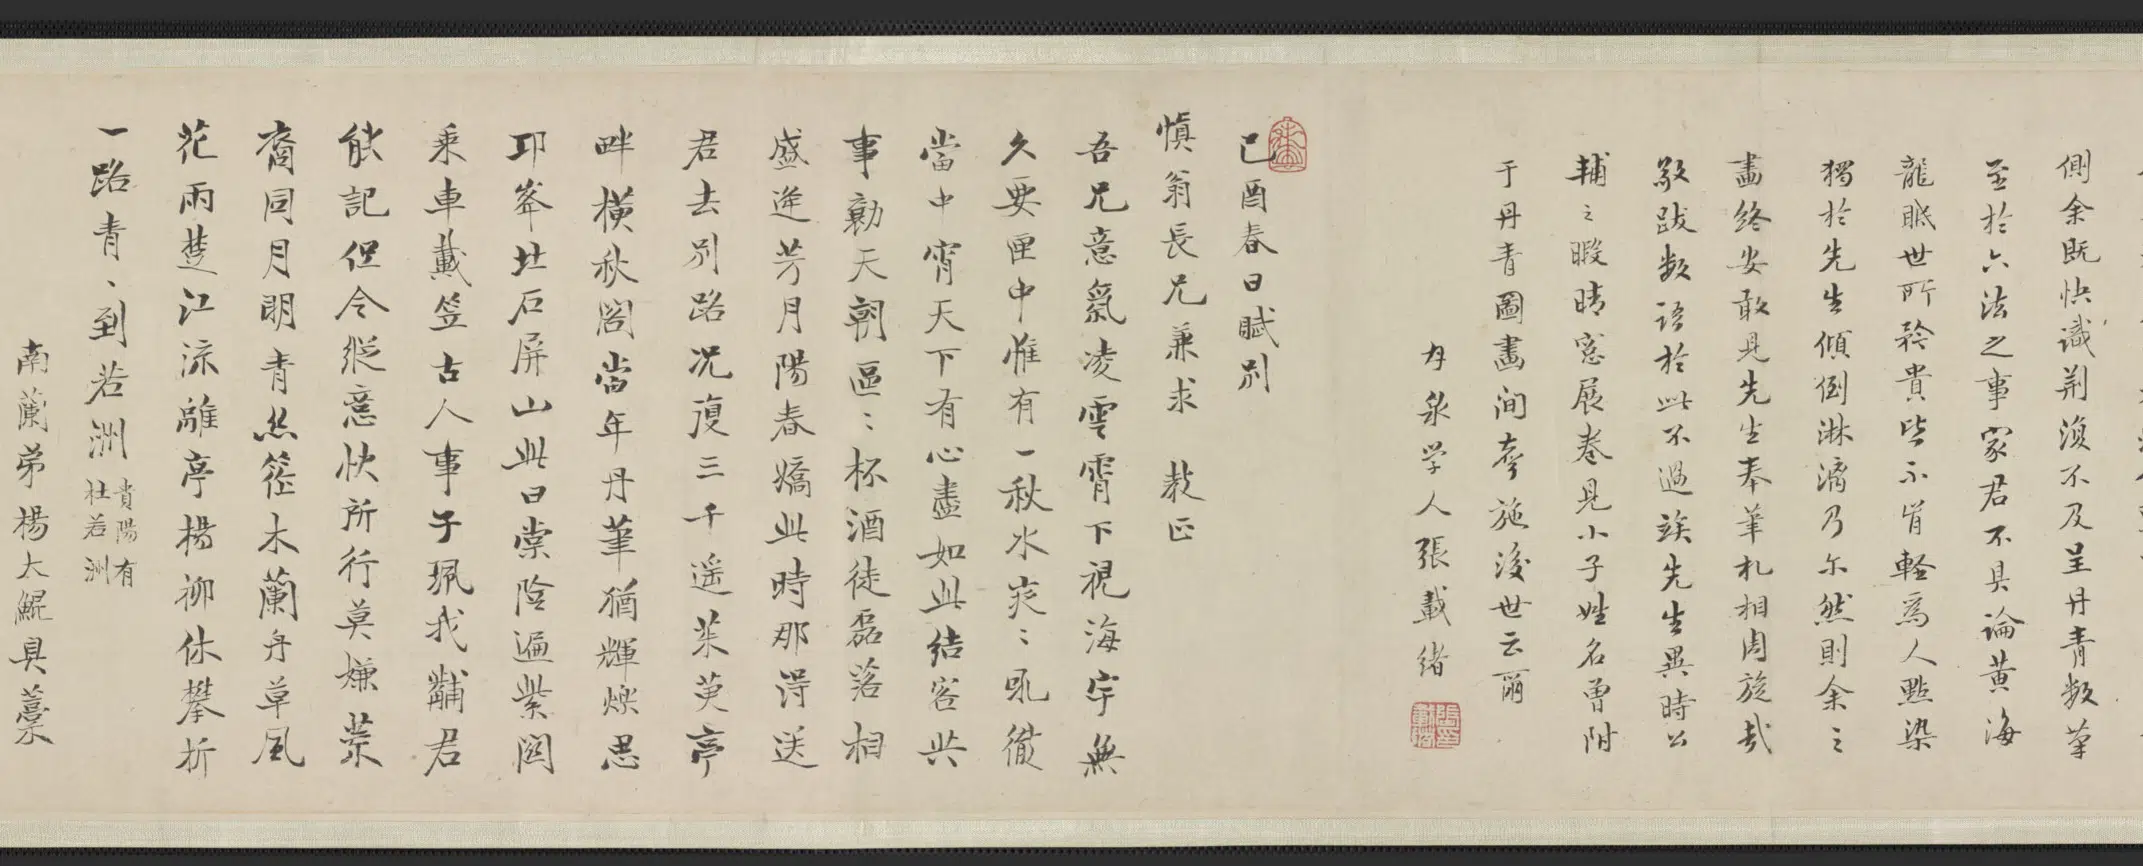 側余既快識荆復不及呈丹青数筆
至於六法之事家君不具論黄海
龍眠世所矜貴皆不肯軽為人點染
獨於先生傾倒淋漓乃尓然則余之
畵終安敢見先生奉筆札相周旋哉
敬跋数語於此不過俟先生異時公
輔之暇晴窓展卷見小子姓名曾附
于丹青圖畵間夸施後世云爾
丹泉学人張載緒
己酉春日賦别
慎翁長兄兼求 教正
吾兄意氣凌雲霄下視海宇無
久要匣中惟有一秋水突〻
當中宵天下有心盡如此結客共
事勷天朝區〻杯酒徒磊落相
盛逢芳月陽春嬌此時那得送
君去别路况復三千遥茱萸亭
畔横秋閣當年丹筆猶輝爍思
邛峯壯石屏山此日棠陰遍紫閣
乗車戴笠古人事子珮我黼君
能記但令縱意快所行莫嫌
裔同月明青絲筰木蘭舟草風
花雨楚江流離亭楊柳休攀折
一路青〻到若洲
貴陽有
杜若洲
南蘭弟楊大鯤具藁